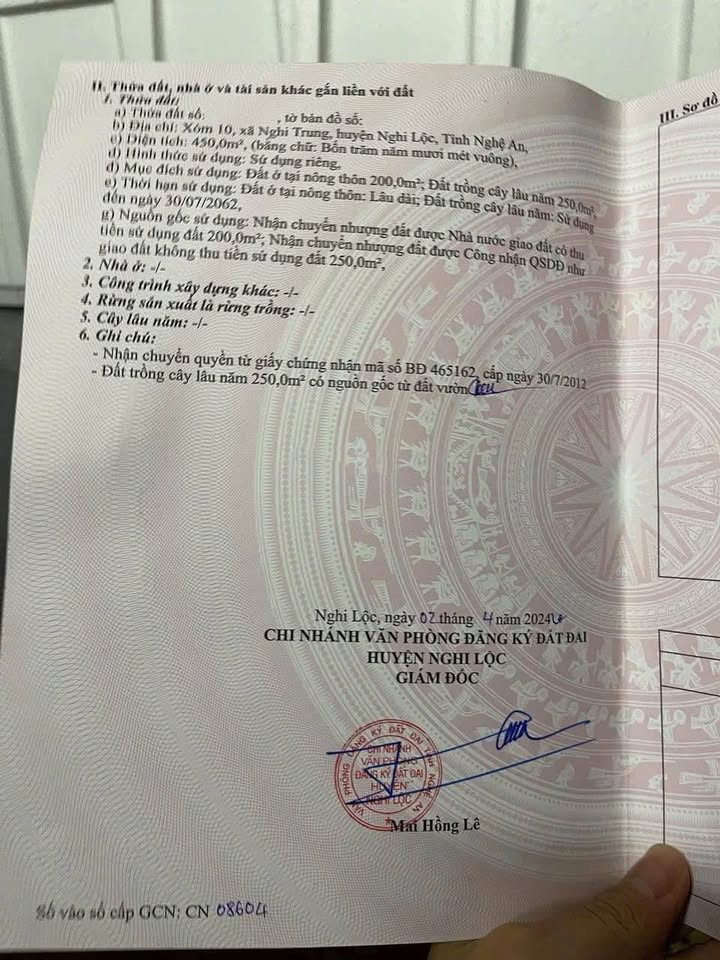 II. Thửa đất, nhà ở và tài sản khác gắn liền với đất
1. Thửa đất:
a) Thửa đất số: , tờ bản đồ số:
b) Địa chỉ: Xóm 10, xã Nghi Trung, huyện Nghi Lộc, Tỉnh Nghệ An,
c) Diện tích: 450,0m², (bằng chữ: Bốn trăm năm mươi mét vuông),
d) Hình thức sử dụng: Sử dụng riêng,
đ) Mục đích sử dụng: Đất ở tại nông thôn 200,0m²; Đất trồng cây lâu năm 250,0m²,
e) Thời hạn sử dụng: Đất ở tại nông thôn: Lâu dài; Đất trồng cây lâu năm: Sử dụng
đến ngày 30/07/2062,
g) Nguồn gốc sử dụng: Nhận chuyển nhượng đất được Nhà nước giao đất có thu
tiền sử dụng đất 200,0m²; Nhận chuyển nhượng đất được Công nhận QSDĐ như
giao đất không thu tiền sử dụng đất 250,0m²,
2. Nhà ở: -/-
3. Công trình xây dựng khác: -/-
4. Rừng sản xuất là rừng trồng: -/-
5. Cây lâu năm: -/-
6. Ghi chú:
- Nhận chuyển quyền từ giấy chứng nhận mã số BĐ 465162, cấp ngày 30/7/2012
- Đất trồng cây lâu năm 250,0m² có nguồn gốc từ đất vườn
III. Sơ đồ
Nghi Lộc, ngày 02 tháng 4 năm 2024
CHI NHÁNH VĂN PHÒNG ĐĂNG KÝ ĐẤT ĐAI
HUYỆN NGHI LỘC
GIÁM ĐỐC
VĂN PHÒNG ĐĂNG KÝ ĐẤT ĐAI TỈNH NGHỆ AN
CHI NHÁNH
VĂN PHÒNG
ĐĂNG KÝ ĐẤT ĐAI
HUYỆN
NGHI LỘC
Mai Hồng Lê
Số vào sổ cấp GCN: CN 08604